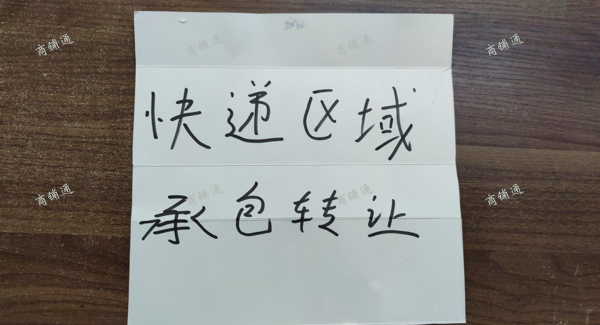 商铺通 商铺通 商铺通
快递区域
承包转让
商铺通 商铺通 商铺通